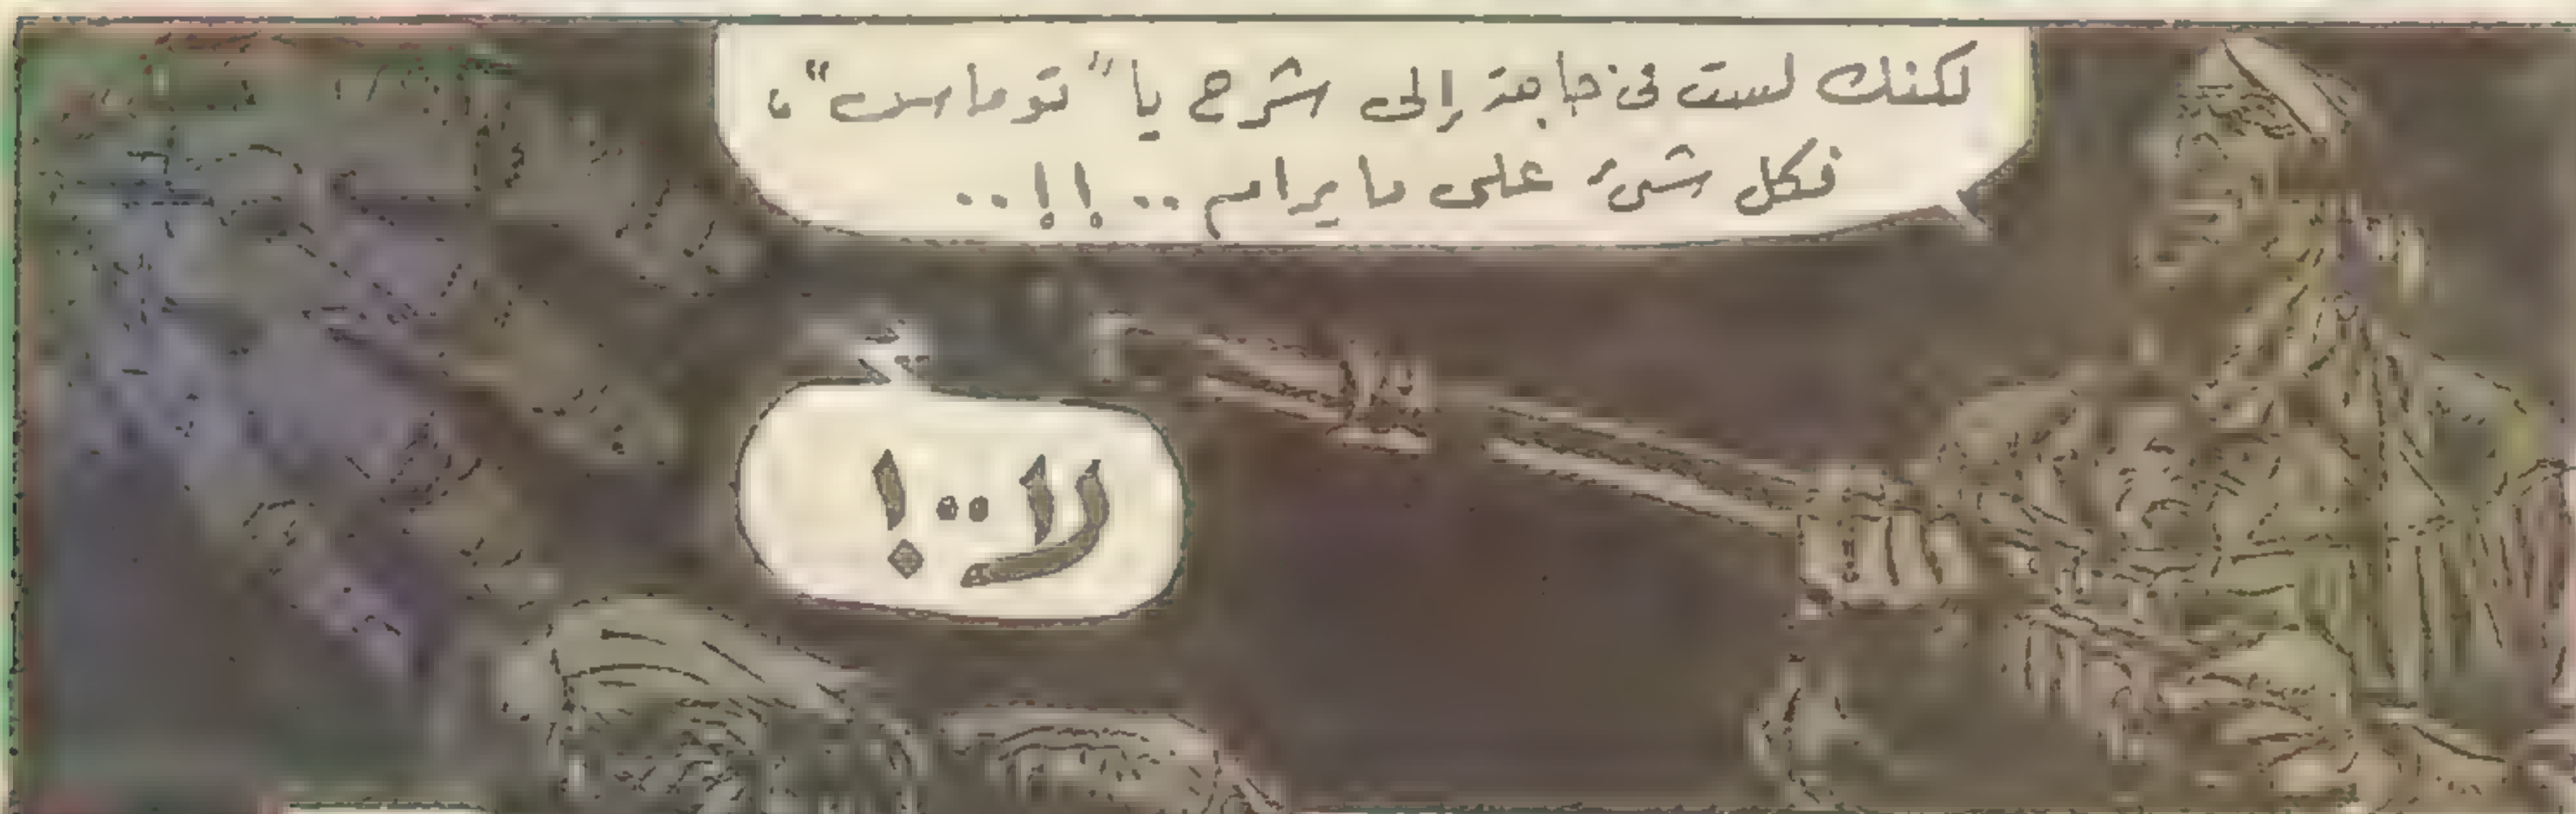 لكنك لست فى حاجة إلى شرح يا "توماس"،
فكل شىء على ما يرام .. !! ..
لا .. !